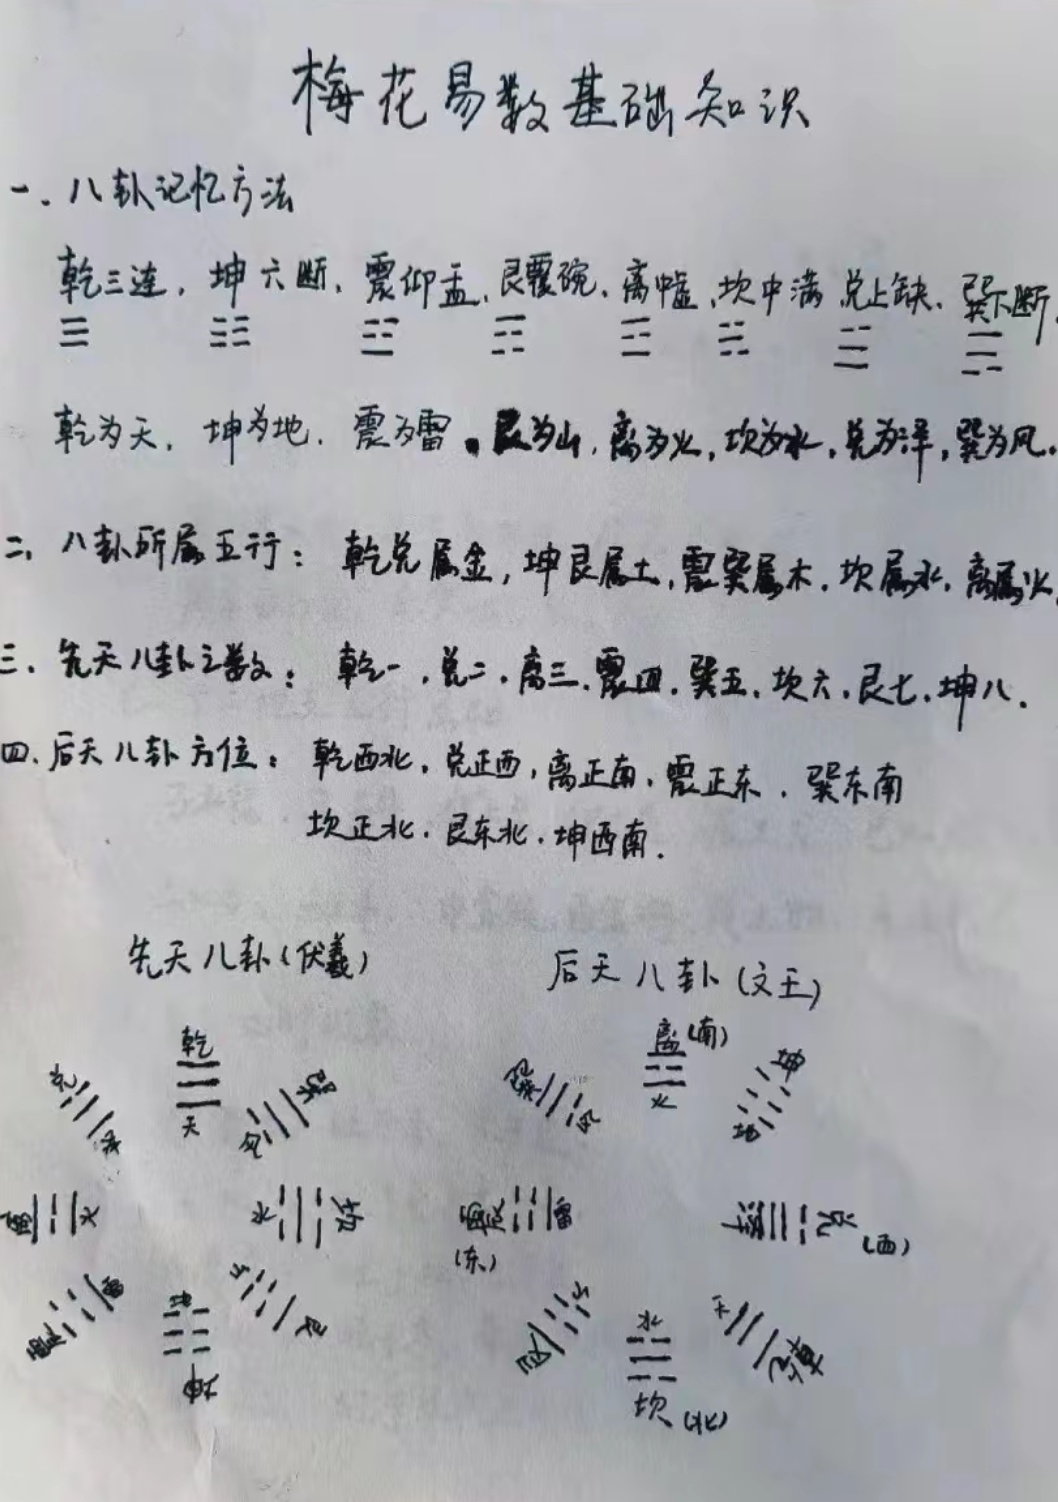 梅花易数基础知识
一、八卦记忆方法
乾三连，坤六断、震仰盂、艮覆碗、离中虚、坎中满 兑上缺、巽下断、
乾为天，坤为地、震为雷、艮为山，离为火，坎为水，兑为泽，巽为风。
二、八卦所属五行：乾兑属金，坤艮属土，震巽属木，坎属水，离属火
三、先天八卦之数：乾一，兑二，离三、震四、巽五、坎六、艮七、坤八．
四、后天八卦方位：乾西北，兑正西，离正南、震正东、巽东南
坎正北、艮东北、坤西南．
先天八卦(伏羲) 后天八卦(文王)
乾 离(南)
兑 巽 巽 坤
天 火
泽 风 风 地
离 火 水 坎 震 雷 泽 兑
(东) (西)
震 雷 山 艮 艮 山 天 乾
地 水
坤 坎(北)